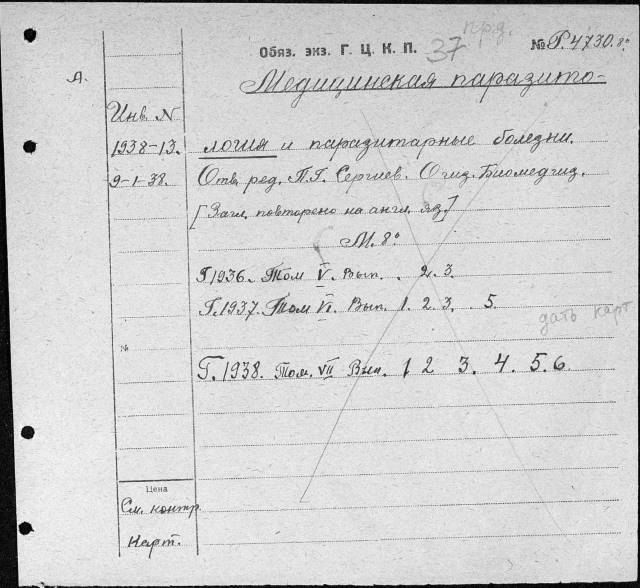 прд.
Обяз. экз. Г. Ц. К. П. 37 № Р. 4730. 8°
А. Медицинская паразито-
Инв. N
1938-13. логия и паразитарные болезни.
9-1-38. Отв. ред. П. Г. Сергиев. Огиз. Биомедгиз.
[Загл. повторено на англ. яз.]
М. 8°
Г. 1936. Том V. Вып. . 2. 3.
Г. 1937. Том VI. Вып. 1. 2. 3. 5.
дать карт
№
Г. 1938. Том. VII Вып. 1 2 3. 4. 5. 6.
Цена
См. контр.
Карт.